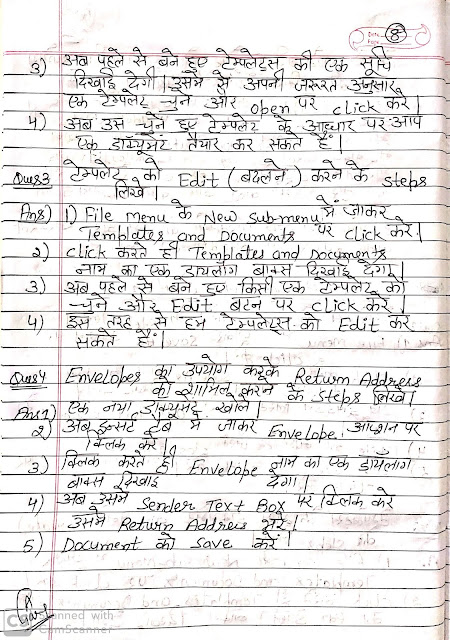 Date
Page
8
3) अब पहले से बने हुए टेम्पलेट्स की एक सूचि
दिखाई देगी। उसमें से अपनी जरूरत अनुसार
एक टेम्पलेट चुने और open पर click करें।
4) अब उस चुने हुए टेम्पलेट के आधार पर आप
एक डॉक्यूमेंट तैयार कर सकते हैं।
Ques3 टेम्पलेट को Edit (बदलने) करने के steps
लिखे।
Ans) 1) File Menu के New sub-menu में जाकर
Templates and Documents पर click करें।
2) click करते ही Templates and Documents
नाम का एक डायलॉग बाक्स दिखाई देगा।
3) अब पहले से बने हुए किसी एक टेम्पलेट को
चुने और Edit बटन पर click करें।
4) इस तरह से हम टेम्पलेट्स को Edit कर
सकते हैं।
Ques4 Envelopes का उपयोग करके Return Address
को शामिल करने के Steps लिखे।
Ans1) एक नया डॉक्यूमेंट खोले।
2) अब इन्सर्ट टैब में जाकर Envelope आप्शन पर
क्लिक करें।
3) क्लिक करते ही Envelope नाम का एक डॉयलाग
बाक्स दिखाई देगा।
4) अब उसमें Sender Text Box पर क्लिक करे
उसमें Return Address भरें।
5) Document को Save करें।
CS Scanned with
CamScanner